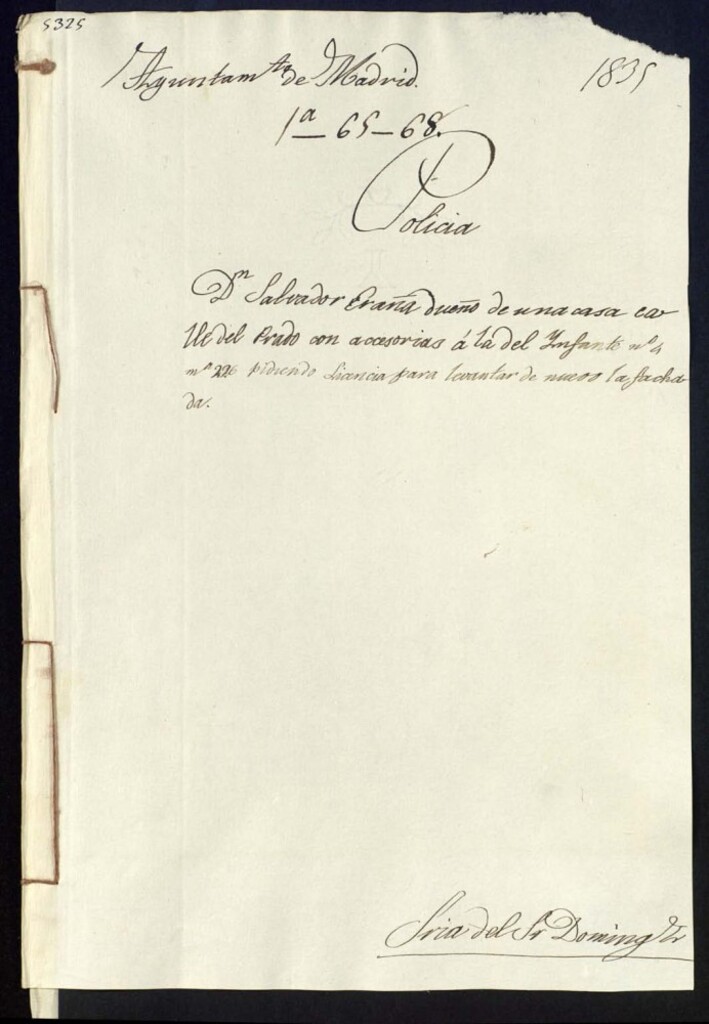 5325
Ayuntam.to de Madrid.
1835
1a 65-68.
Policia
Dn Salvador Eraña dueño de una casa ca
lle del Prado con accesorias á la del Infante nº 4
mª 226 pidiendo Licencia para levantar de nuevo la facha
da.
Sria del Sr Doming